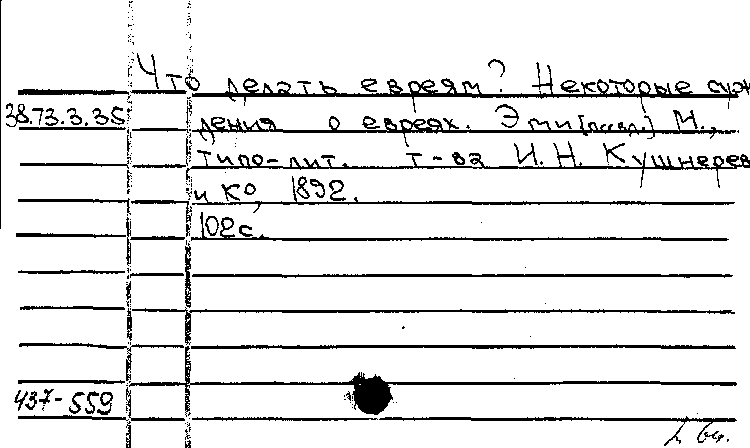 Что делать евреям? Некоторые суж
38.73.3.35 дения о евреях. Эми[псевд.] М.,
типо-лит. т-ва И.Н. Кушнерев
и ко, 1892.
102с.
437-559